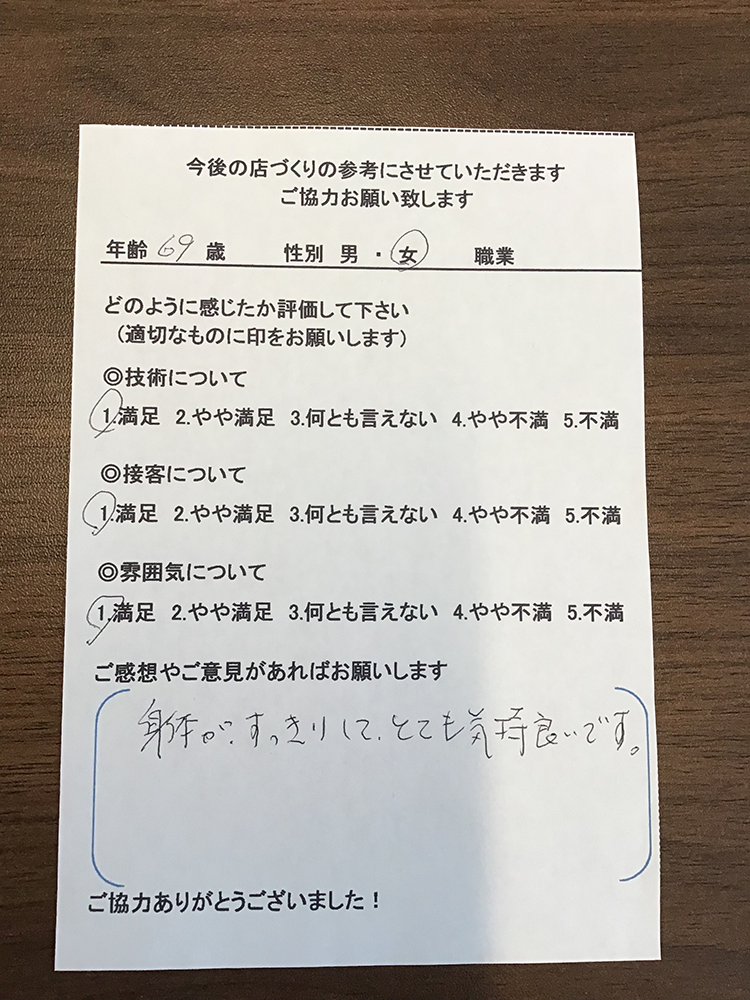 今後の店づくりの参考にさせていただきます
ご協力お願い致します
年齢 69 歳 性別 男 ・ 女 職業
どのように感じたか評価して下さい
(適切なものに印をお願いします)
◎技術について
1.満足 2.やや満足 3.何とも言えない 4.やや不満 5.不満
◎接客について
1.満足 2.やや満足 3.何とも言えない 4.やや不満 5.不満
◎雰囲気について
1.満足 2.やや満足 3.何とも言えない 4.やや不満 5.不満
ご感想やご意見があればお願いします
身体が、すっきりして、とても気持良いです。
ご協力ありがとうございました!